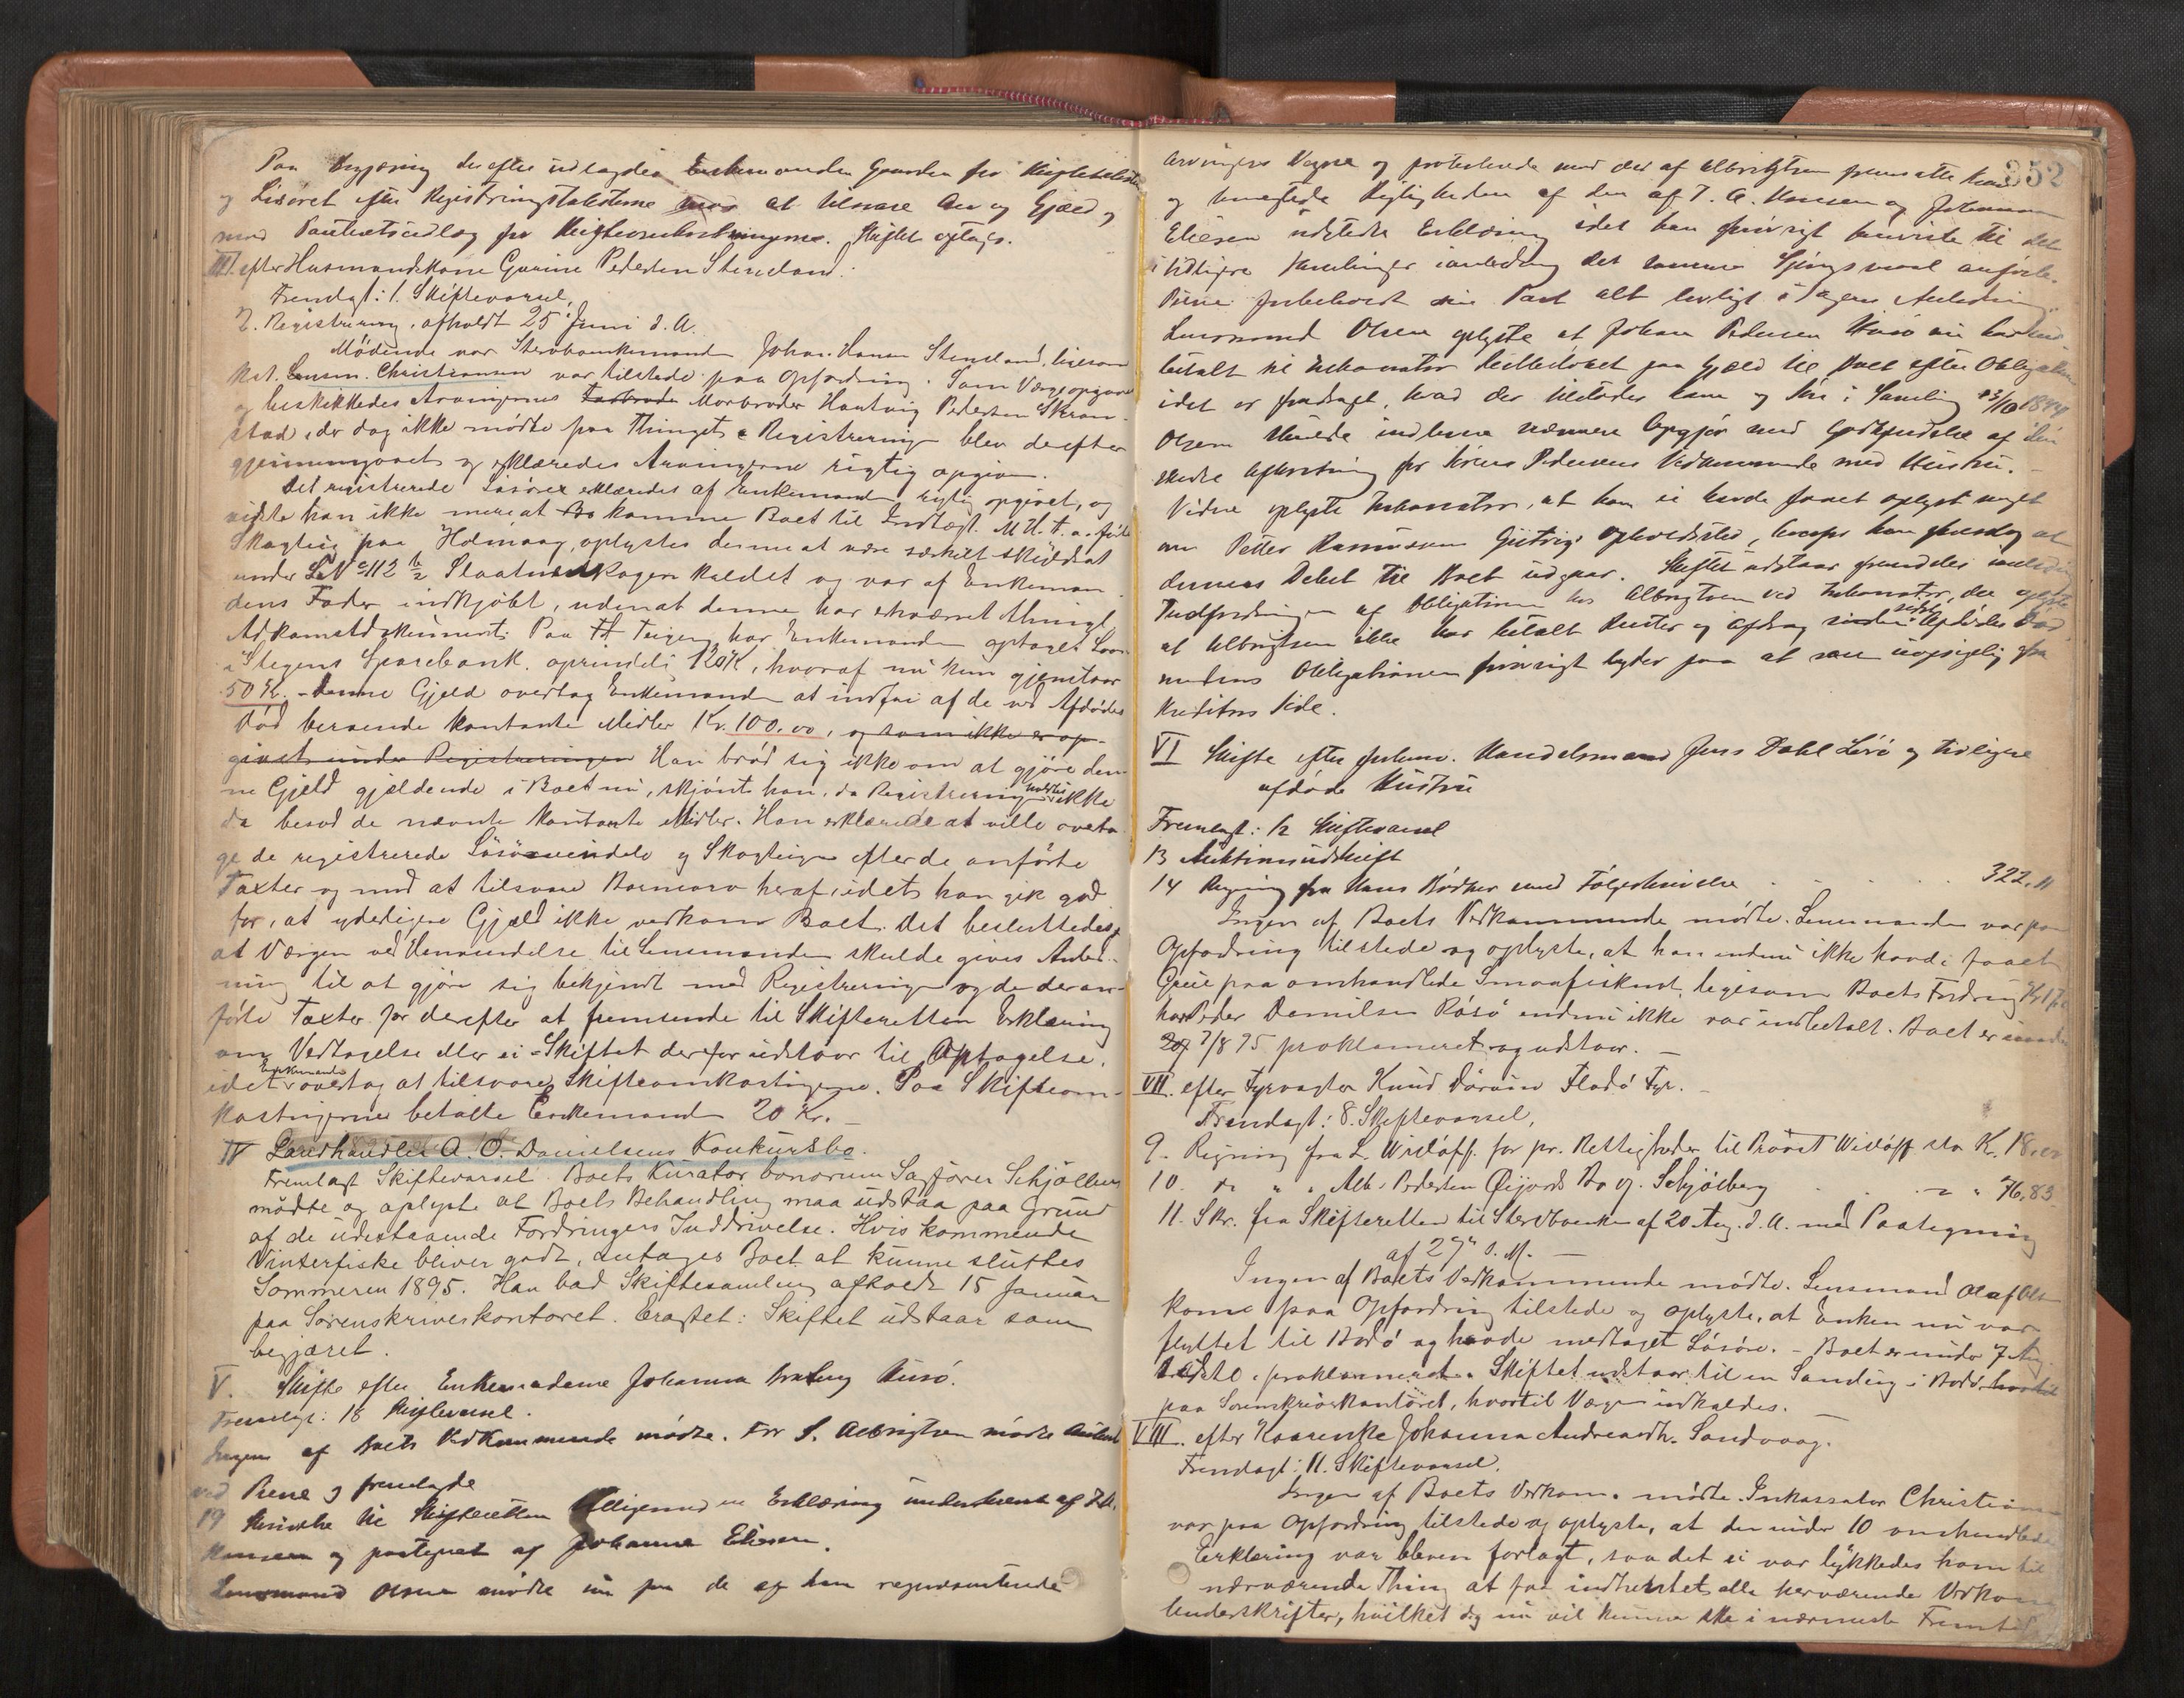 Paa Begjæring derefter udlagdes Enkemanden Gaarden for Skiftetaxten
og Løsøret efter Registreringstaksterne mod at tilsvare Arv og Gjæld og
mod Panteudlæg for Skifteomkostningerne. Skiftet optages.
III. efter Husmandskone Gurine Pedersen Stensland.
Fremlagt: 1. Skiftevarsel,
2. Registrering, afholdt 25 Juni d. A.
Mødende var Sterboenkemand Johan Hansen Stensland, ligesom
Kst. Lensm. Christiansen var tilstede paa Opfordring. Som Værge opgaves
og beskikkedes Arvingernes Farbroder Morbroder Hartvig Pedersen Skran-
stad, der dog ikke mødte paa Thinget. Registrering blev derefter
gjennemgaaet og erklæredes Arvingerne rigtig opgivne.
Det registrerede Løsøre erklæredes af Enkemanden rigtig opgivet, og
vidste han ikke mere at Bo komme Boet til Indtægt. M. H. t. anførte
Skogteig paa Holmaag, oplystes denne at være særskilt skyldsat
under L No 112 b/2 Slaatnesskogen kaldet og var af Enkeman-
dens Fader indkjøbt, uden at denne har erhvervet thinglyst
Adkomstdokument. Paa Teigen har Enkemanden optaget Laan
i Stegens Sparebank, oprindelig 120 K, hvoraf nu kun gjenstaar
50 K. - Denne Gjeld overtog Enkemanden at indfri af de ved Afdødes
Død beroende kontante Midler Kr. 100,00, og som ikke er op-
givet under Registreringen Han brød sig ikke om at gjøre den-
ne Gjeld gjældende i Boet nu, skjønt han, da Registrering holdtes ikke
da besad de nævnte kontante Midler. Han erklærede at ville overta-
ge de registrerede Løsøreiendele og Skogteigen efter de anførte
Taxter og mod at tilsvare Barnearv heraf, idet han gik god
for, at yderligere Gjæld ikke vedkom Boet. Det besluttedes,
at Værgen ved Henvendelse til Lensmanden skulde gives Anled-
ning til at gjøre sig bekjendt med Registreringen og de deran-
førte Taxter for derefter at fremsende til Skifteretten Erklæring
om Vedtagelse eller ei. - Skiftet derfor udstaar til Optagelse,
idet Enkemanden overtog at tilsvare Skifteomkostningerne. Paa Skifteom-
kostningerne betalte Enkemanden 20 Kr. -
IV Landhandler A. O. Danielsens Konkursbo.
Fremlagt Skiftevarsel. Boets Kurator bonorum Sagfører Schjølberg
mødte og oplyste at Boets Behandling maa udstaa paa Grund
af de udestaaende Fordringers Inddrivelse. Hvis kommende
Vinterfiske bliver godt, antages Boet at kunne sluttes
Sommeren 1895. Han bad Skiftesamling afholdt 15 Januar
paa Sorenskriverkontoret. Eragtet: Skiftet udstaar som
begjæret.
V. Skifte efter Enkemadame Johanna Husø.
Fremlagt: 18 Skiftevarsel.
Ingen af Boets Vedkommende mødte. For S. Albrigtsen mødte
ved Piene og fremlagde
19 Skrivelse til Skifteretten tilligemed en Erklæring underskrevet af T. A.
Hansen og paategnet af Johanna Eliesen.
Lensmand Olsen mødte nu paa de af ham repræsenterede
352
Arvingers Vegne og protesterede mod det af Albrigtsen fremsatte Krav
og benegtede Rigtigheden af den af T. A. Hansen og Johanna
Eliesen udstedte Erklæring idet han forøvrigt henviste til det
i tidligere Samlinger i anledning det samme Spørgsmaal anførte.
Piene forbeholdt sin Part alt lovligt i Sagens Anledning.
Lensmand Olsen oplyste at Johan Pedersen Husø nu har ind-
betalt til Inkassator Restbeløbet paa Gjæld til Boet efter Obligation
idet er fradraget, hvad der tilstodes ham og Søn i Samling 23/10 1894
Olsen skulde indlevere nærmere Opgjør med Godkjendelse af den
skedte Afkortning for Jens Pedersens Vedkommende med Hustru. -
Videre oplyste Inkassator, at han ei havde faaet oplyst noget
om Petter Rasmussens Gjetvig Opholdssted, hvorfor han foreslog at
dennes Debet til Boet udgaar. Skiftet udstaar fremdeles i anledning
Inddrivningen af Obligationen hos Albrigtsen ved Inkassator, der oplyste
at Albrigtsen ikke har betalt Renter og Afdrag siden sidst Afdødes Død,
medens Obligationen forøvrigt lyder paa at være uopsigelig fra
Kreditors Side.
VI Skifte efter forhenv. Handelsmand Jens Dahl Løvø og tidligere
afdøde Hustru
Fremlagt: 12 Skiftevarsel
13 Auktionsudskrift
14 Regning fra Hans Bødker med Følgeskrivelse . . . . 322,11
Ingen af Boets Vedkommende mødte. Lensmanden var paa
Opfordring tilstede og oplyste, at han endnu ikke havde faaet
Greie paa omhandlede Smaafiskeret, ligesom Boets Fordring Kr 17
hos Peder Danielsen Røsø endnu ikke var indbetalt. Boet er under
20/7 7/8 95 proklameret og udstaar. -
VII. efter Fyrvogter Knud Dørum Flatø Fyr.
Fremlagt: 8. Skiftevarsel,
9. Regning fra L. Wisløff for pr. Rettigheder til Provst Wisløff stor K. 18,00
10. do " " Alb. Pedersen Øijords Bo v. Schjølberg . . - " 76,83
11. Skr. fra Skifteretten til Sterboenken af 20 Aug. d. A. med Paategning
af 29de s. M. -
Ingen af Boets Vedkommende mødte. Lensmand Olaf Olsen
kom paa Opfordring tilstede og oplyste, at Enken nu var
flyttet til Bodø og havde medtaget Løsøre. - Boet er under 7 Aug.
sidste proklameret. Skiftet udstaar til en Samling i Bodø hvortil
paa Sorenskriverkontoret, hvortil Værgen indkaldes.
VIII. efter Kaarenke Johanna Andreasdtr. Sandvaag.
Fremlagt: 11. Skiftevarsel.
Ingen af Boets Vedkom. mødte. Inkassator Christiansen
var paa Opfordring tilstede og oplyste, at den under 10 omhandlede
Erklæring var bleven forlagt, saa det ei var lykkedes ham til
nærværende Thing at faa indhentet alle herværende Vedkom
Underskrifter, hvilket dog nu vil kunne ske i nærmeste Fremtid